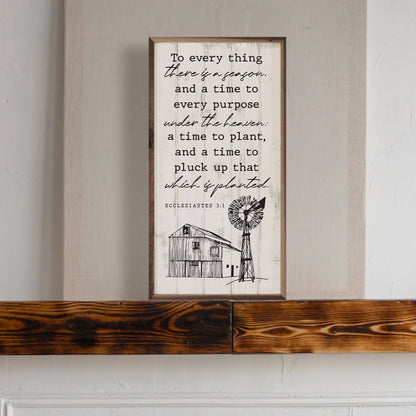 To every thing
there is a season.
and a time to
every purpose
under the heaven:
a time to plant,
and a time to
pluck up that
which is planted.
ECCLESIASTES 3:1